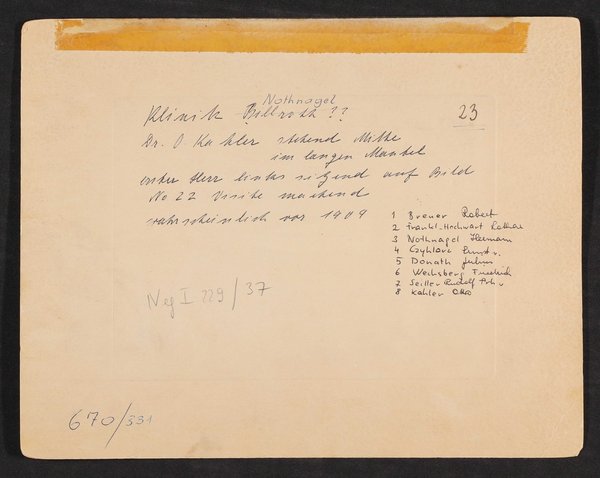 Nothnagel
Klinik Billroth ??
23
Dr. O. Kahler stehend Mitte
im langen Mantel
erster Herr links sitzend auf Bild
No 22 Visite machend
wahrscheinlich vor 1909
1 Breuer Robert
2 Frankl-Hochwart Lothar
3 Nothnagel Hermann
4 Czyhlarz Ernst v.
5 Donath Julius
6 Weichsberg Friedrich
7 Seiller Rudolf Frh v
8 Kahler Otto
Neg I 229/37
670/331